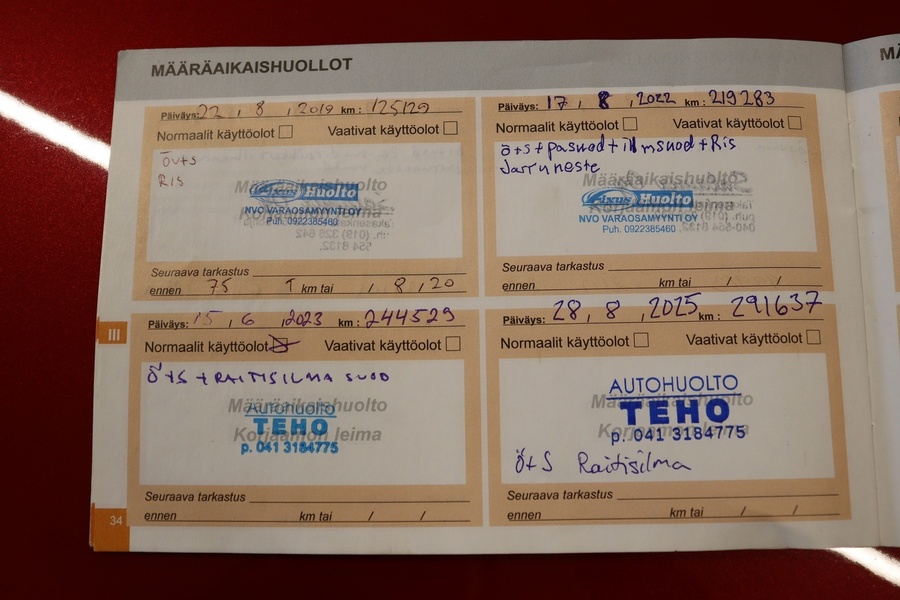 MÄÄRÄAIKAISHUOLLOT
Päiväys: 22 , 8 , 2019 km : 125129
Normaalit käyttöolot Vaativat käyttöolot
öv+s
RiS
Määräaikaishuolto
Fixus Huolto
NVO VARAOSAMYYNTI OY
Puh. 0922385460
Seuraava tarkastus
ennen 75 T km tai / 8 , 20
Päiväys: 17 , 8 , 2022 km : 219283
Normaalit käyttöolot Vaativat käyttöolot
ö+s+pasuod+ilmsuod+Ris
Jarruneste
Määräaikaishuolto
Fixus Huolto
Korjaamon leima
NVO VARAOSAMYYNTI OY
Puh. 0922385460
Seuraava tarkastus
ennen km tai / /
III
Päiväys: 15 , 6 , 2023 km : 244529
Normaalit käyttöolot Vaativat käyttöolot
Ö+S +RAITISILMA SUOD
Määräaikaishuolto
AUTOHUOLTO
TEHO
Korjaamon leima
p. 041 3184775
Seuraava tarkastus
ennen km tai / /
Päiväys: 28 , 8 , 2025 km : 291637
Normaalit käyttöolot Vaativat käyttöolot
AUTOHUOLTO
Määräaikaishuolto
TEHO
Korjaamon leima
p. 041 3184775
Ö+S Raitisilma
Seuraava tarkastus
ennen km tai / /
34